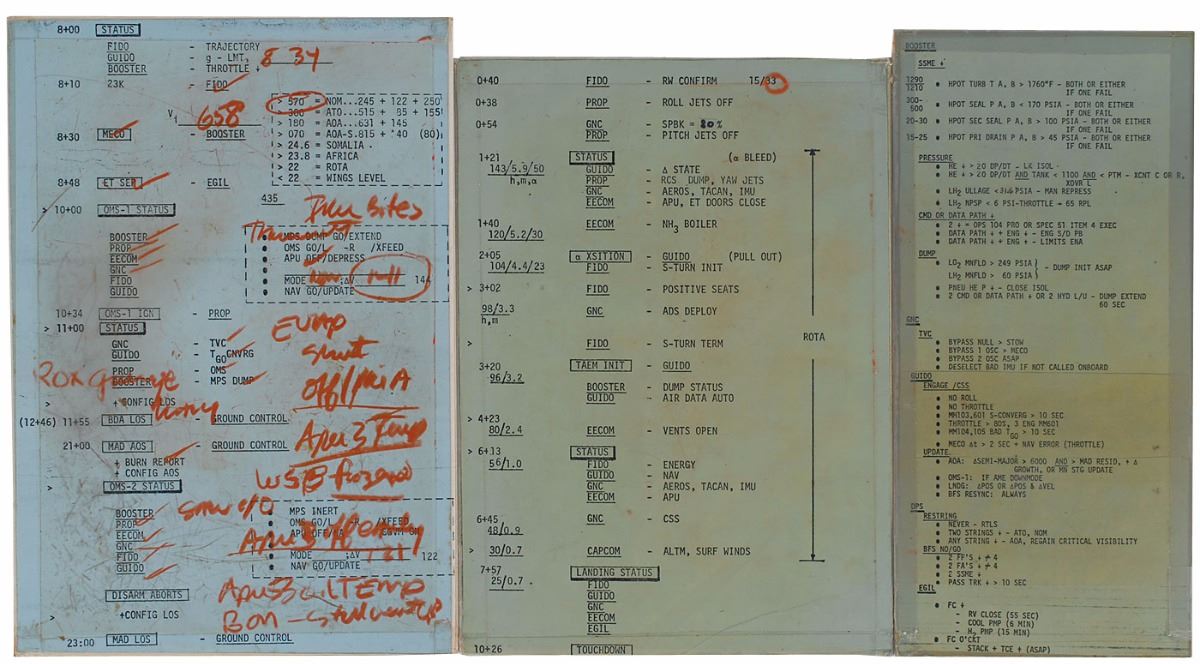 8+00 STATUS
FIDO - TRAJECTORY
GUIDO - g - LMT, 8 34
BOOSTER - THROTTLE ↓
8+10 23K - FIDO
V 658
> 570 = NOM...245 + 122 + 250
= ATO...515 + 85 + 155
> 180 = AOA...631 + 145
> 070 = AOA-S.815 + 40 (80)
> 24.6 = SOMALIA
> 23.8 = AFRICA
> 22 = ROTA
< 22 = WINGS LEVEL
8+30 MECO - BOOSTER
8+48 ET SEP - EGIL
435
> 10+00 OMS-1 STATUS
IMU Bites
BOOSTER
PROP
EECOM
GNC
FIDO
GUIDO
● MPS DUMP GO/EXTEND
● OMS GO/L -R /XFEED
● APU OFF/DEPRESS
● MODE ;ΔV 144
● NAV GO/UPDATE
10+34 OMS-1 IGN - PROP
> 11+00 STATUS
GNC - TVC
GUIDO - TGO CNVRG
PROP - OMS
BOOSTER - MPS DUMP
EVAP
shut
off/Pri A
> ↓CONFIG LOS
(12+46) 11+55 BDA LOS - GROUND CONTROL
21+00 MAD AOS - GROUND CONTROL
Apu 3 Temp
↓ BURN REPORT
↓ CONFIG AOS
WSB frozen
> OMS-2 STATUS
BOOSTER
PROP
EECOM
GNC
FIDO
GUIDO
● MPS INERT
● OMS GO/L -R /XFEED
● MODE ;ΔV 121 122
● NAV GO/UPDATE
Apu 3 off early
DISARM ABORTS
Apu 3 oil TEMP
> ↓CONFIG LOS
23:00 MAD LOS - GROUND CONTROL
0+40 FIDO - RW CONFIRM 15/33
0+38 PROP - ROLL JETS OFF
0+54 GNC - SPBK = 80%
PROP - PITCH JETS OFF
1+21 STATUS (α BLEED)
143/5.9/50 GUIDO - Δ STATE
h,m,α PROP - RCS DUMP, YAW JETS
GNC - AEROS, TACAN, IMU
EECOM - APU, ET DOORS CLOSE
1+40 EECOM - NH3 BOILER
120/5.2/30
2+05 α XSITION - GUIDO (PULL OUT)
104/4.4/23 FIDO - S-TURN INIT
> 3+02 FIDO - POSITIVE SEATS
98/3.3 GNC - ADS DEPLOY
h,m
> FIDO - S-TURN TERM
ROTA
3+20 TAEM INIT - GUIDO
96/3.2 BOOSTER - DUMP STATUS
GUIDO - AIR DATA AUTO
> 4+23
80/2.4 EECOM - VENTS OPEN
> 6+13 STATUS
56/1.0 FIDO - ENERGY
GUIDO - NAV
GNC - AEROS, TACAN, IMU
EECOM - APU
6+45 GNC - CSS
48/0.9
> 30/0.7 CAPCOM - ALTM, SURF WINDS
7+57 LANDING STATUS
25/0.7 FIDO
GUIDO
GNC
EECOM
EGIL
10+26 TOUCHDOWN
BOOSTER
SSME ↓
1290 ● HPOT TURB T A, B > 1760°F - BOTH OR EITHER
1210 IF ONE FAIL
300- ● HPOT SEAL P A, B < 170 PSIA - BOTH OR EITHER
500 IF ONE FAIL
20-30 ● HPOT SEC SEAL P A, B > 100 PSIA - BOTH OR EITHER
IF ONE FAIL
15-25 ● HPOT PRI DRAIN P A, B > 45 PSIA - BOTH OR EITHER
IF ONE FAIL
PRESSURE
● HE ↓ > 20 DP/DT - LK ISOL
● HE ↓ > 20 DP/DT AND TANK < 1100 AND < PTM - XCNT C OR R,
XOVR L
● LH2 ULLAGE < PSIA - MAN REPRESS
● LH2 NPSP < 6 PSI-THROTTLE → 65 RPL
CMD OR DATA PATH ↓
● 2 ↓ = OPS 104 PRO OR SPEC 51 ITEM 4 EXEC
● DATA PATH ↓ + ENG ↓ - ENG S/D PB
● DATA PATH ↓ + ENG ↓ - LIMITS ENA
DUMP
● LO2 MNFLD > 249 PSIA
LH2 MNFLD > 60 PSIA } - DUMP INIT ASAP
● PNEU HE P ↓ - CLOSE ISOL
● 2 CMD OR DATA PATH ↓ OR 2 HYD L/U - DUMP EXTEND
60 SEC
GNC
TVC
● BYPASS NULL > STOW
● BYPASS 1 OSC > MECO
● BYPASS 2 OSC ASAP
● DESELECT BAD IMU IF NOT CALLED ONBOARD
GUIDO
ENGAGE /CSS
● NO ROLL
● NO THROTTLE
● MM103,601 S-CONVERG > 10 SEC
● THROTTLE > 80%, 3 ENG MM601
● MM104,105 BAD TGO > 10 SEC
● MECO Δt > 2 SEC + NAV ERROR (THROTTLE)
UPDATE.
● AOA: ΔSEMI-MAJOR > 6000 AND > MAD RESID, + Δ
GROWTH, OR MN STG UPDATE
● OMS-1: IF AME DOWNMODE
● LNDG: ΔPOS OR ΔPOS & ΔVEL
● BFS RESYNC: ALWAYS
DPS
RESTRING
● NEVER - RTLS
● TWO STRINGS ↓ - ATO, NOM
● ANY STRING ↓ - AOA, REGAIN CRITICAL VISIBILITY
BFS NO/GO
● 2 FF'S ↓ ≠ 4
● 2 FA'S ↓ ≠ 4
● 2 SSME ↓
● PASS TRK ↓ > 10 SEC
EGIL
● FC ↓
- RV CLOSE (55 SEC)
- COOL PMP (6 MIN)
- H2 PMP (15 MIN)
● FC O'CKT
- STACK + TCE ↓ (ASAP)